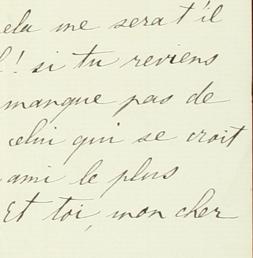 ela me sera t'il
! si tu reviens
manque pas de
celui qui se croit
ami le plus
Et toi, mon cher